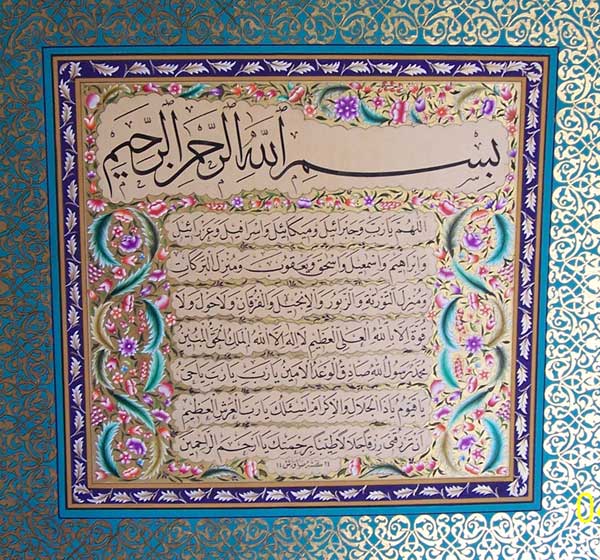 بِسْمِ ٱللّٰهِ ٱلرَّحْمٰنِ ٱلرَّحِيمِ
اللهم يارب وجبرائيل وميكائيل واسرافيل وعزرائيل
وابراهيم واسمعيل واسحق ويعقوب ومنزل البركات
ومنزل التورية والزبور والانجيل والفرقان ولاحول ولا
قوة الا بالله العلى العظيم لااله الا الله الملك الحق المبين
محمد رسول الله صادق الوعد الامين يارب يارب ياحى
ياقيوم ياذا الجلال والاكرام اسئلك يارب العرش العظيم
ان ترزقنى رزقا حلالا طيبا برحمتك ياارحم الراحمين